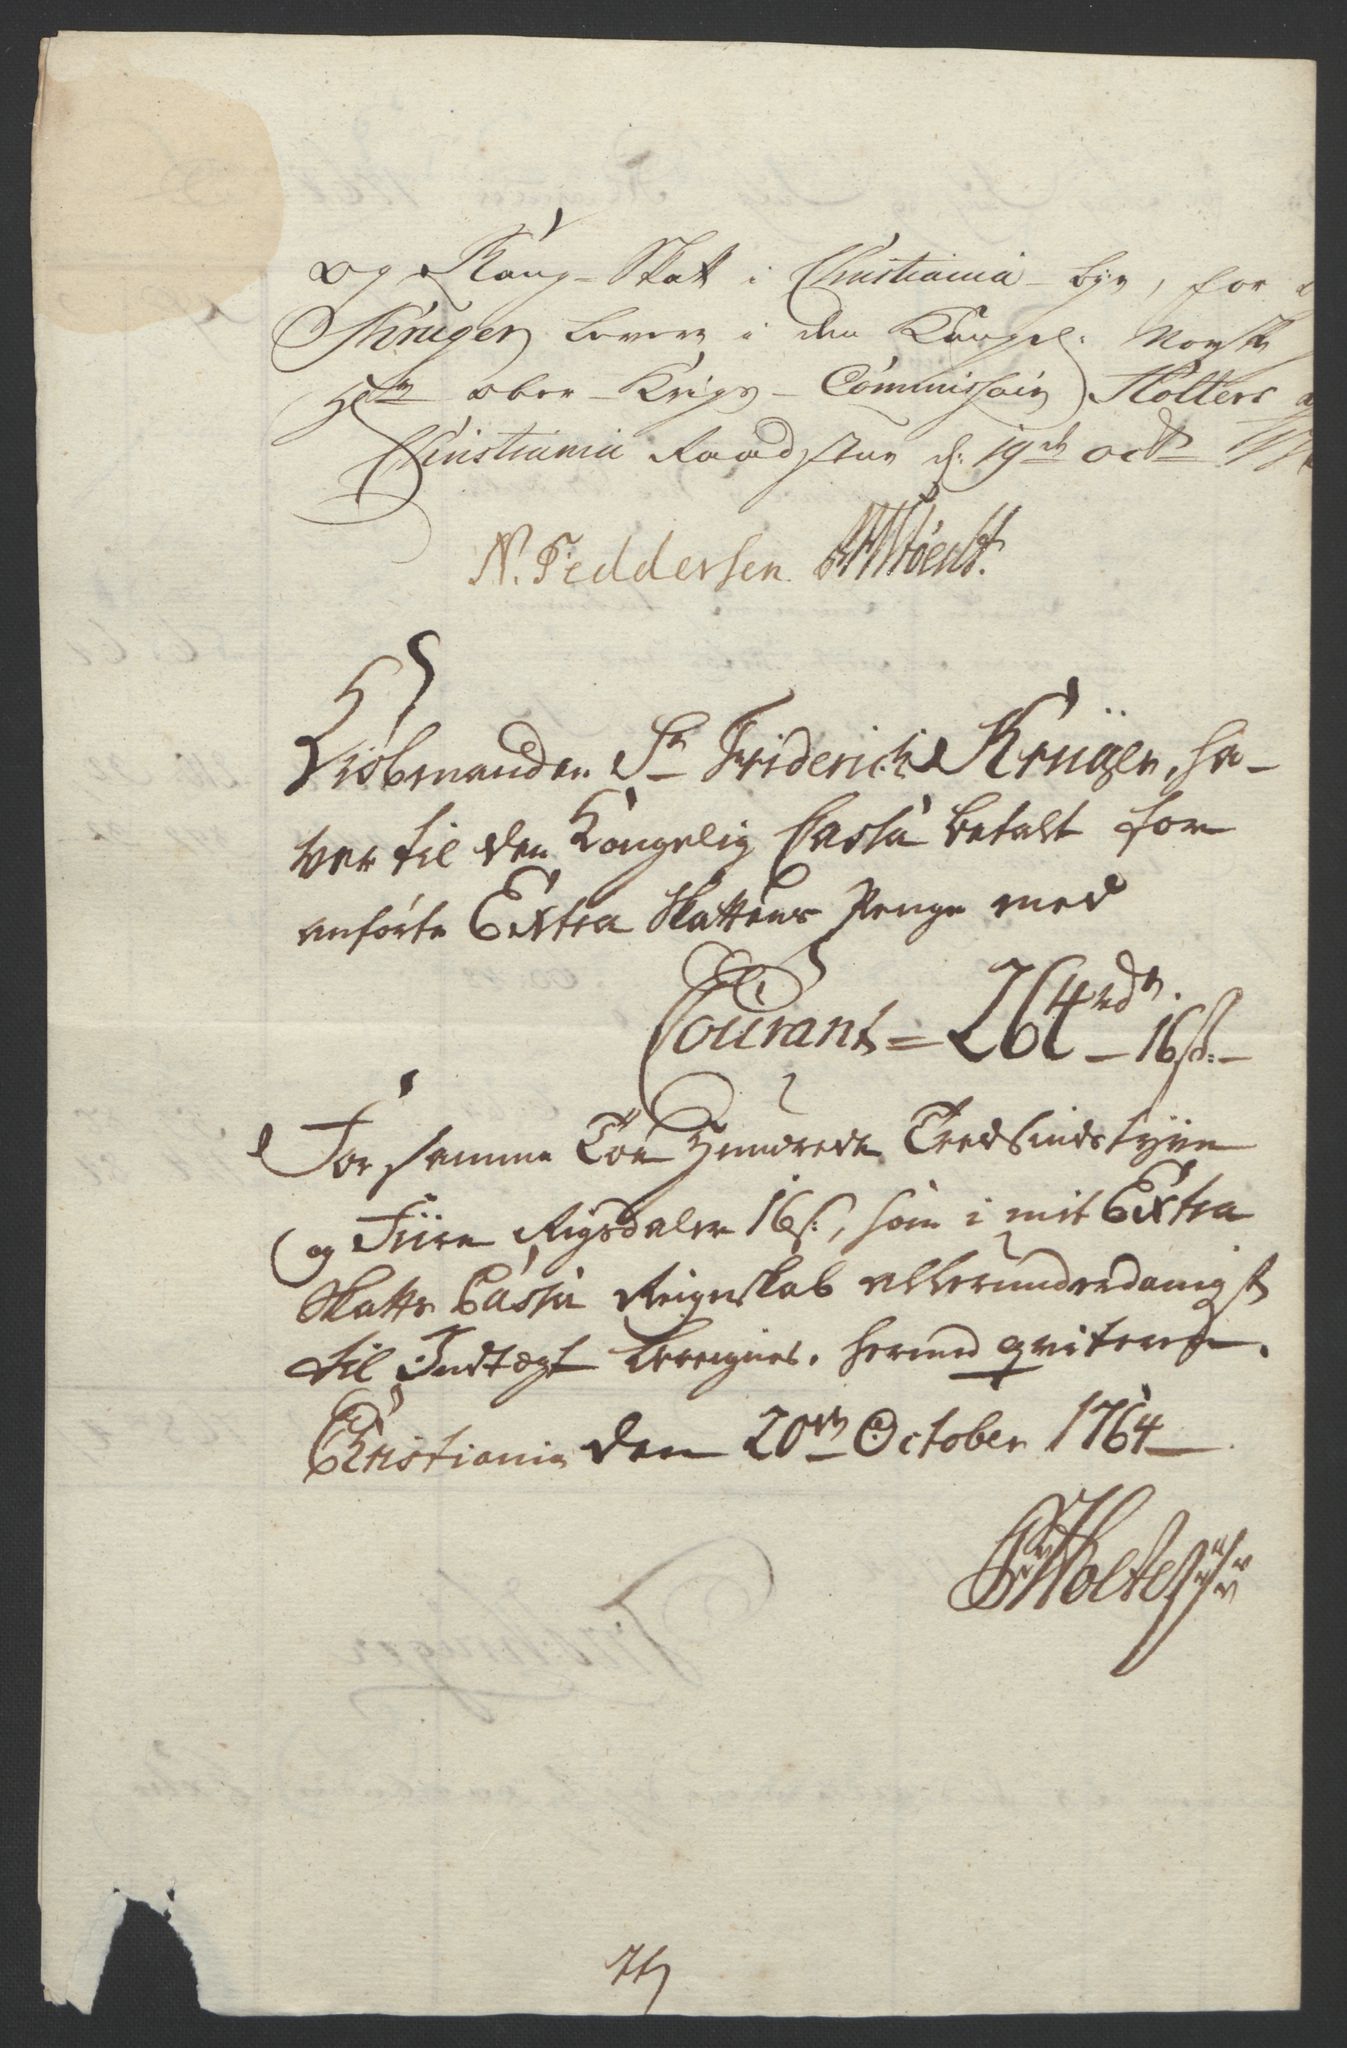 og Rang-Skat i Christiania bye, for
Krüger levere i den Kongel: Norske
Hr ober-Krigs-Commissair Holters
Christiania Raadstue d: 19de octr
N. Feddersen.
Kiöbmanden Sr Friderich Krüger, ha-
ver til den Kongelig Cassa betalt for
anförte Extra Skattens Penge med
Courant = 264 rdr. - 16 s: -
For samme Toe Hundrede Tredsindstyve
og Fiire Rigsdaler 16 s:, som i mit Extra
Skatte Cassa Reigenskab allerunderdanigst
til Indtægt bereignes, hermed qviteres.
Christiania den 20de October 1764
Holter